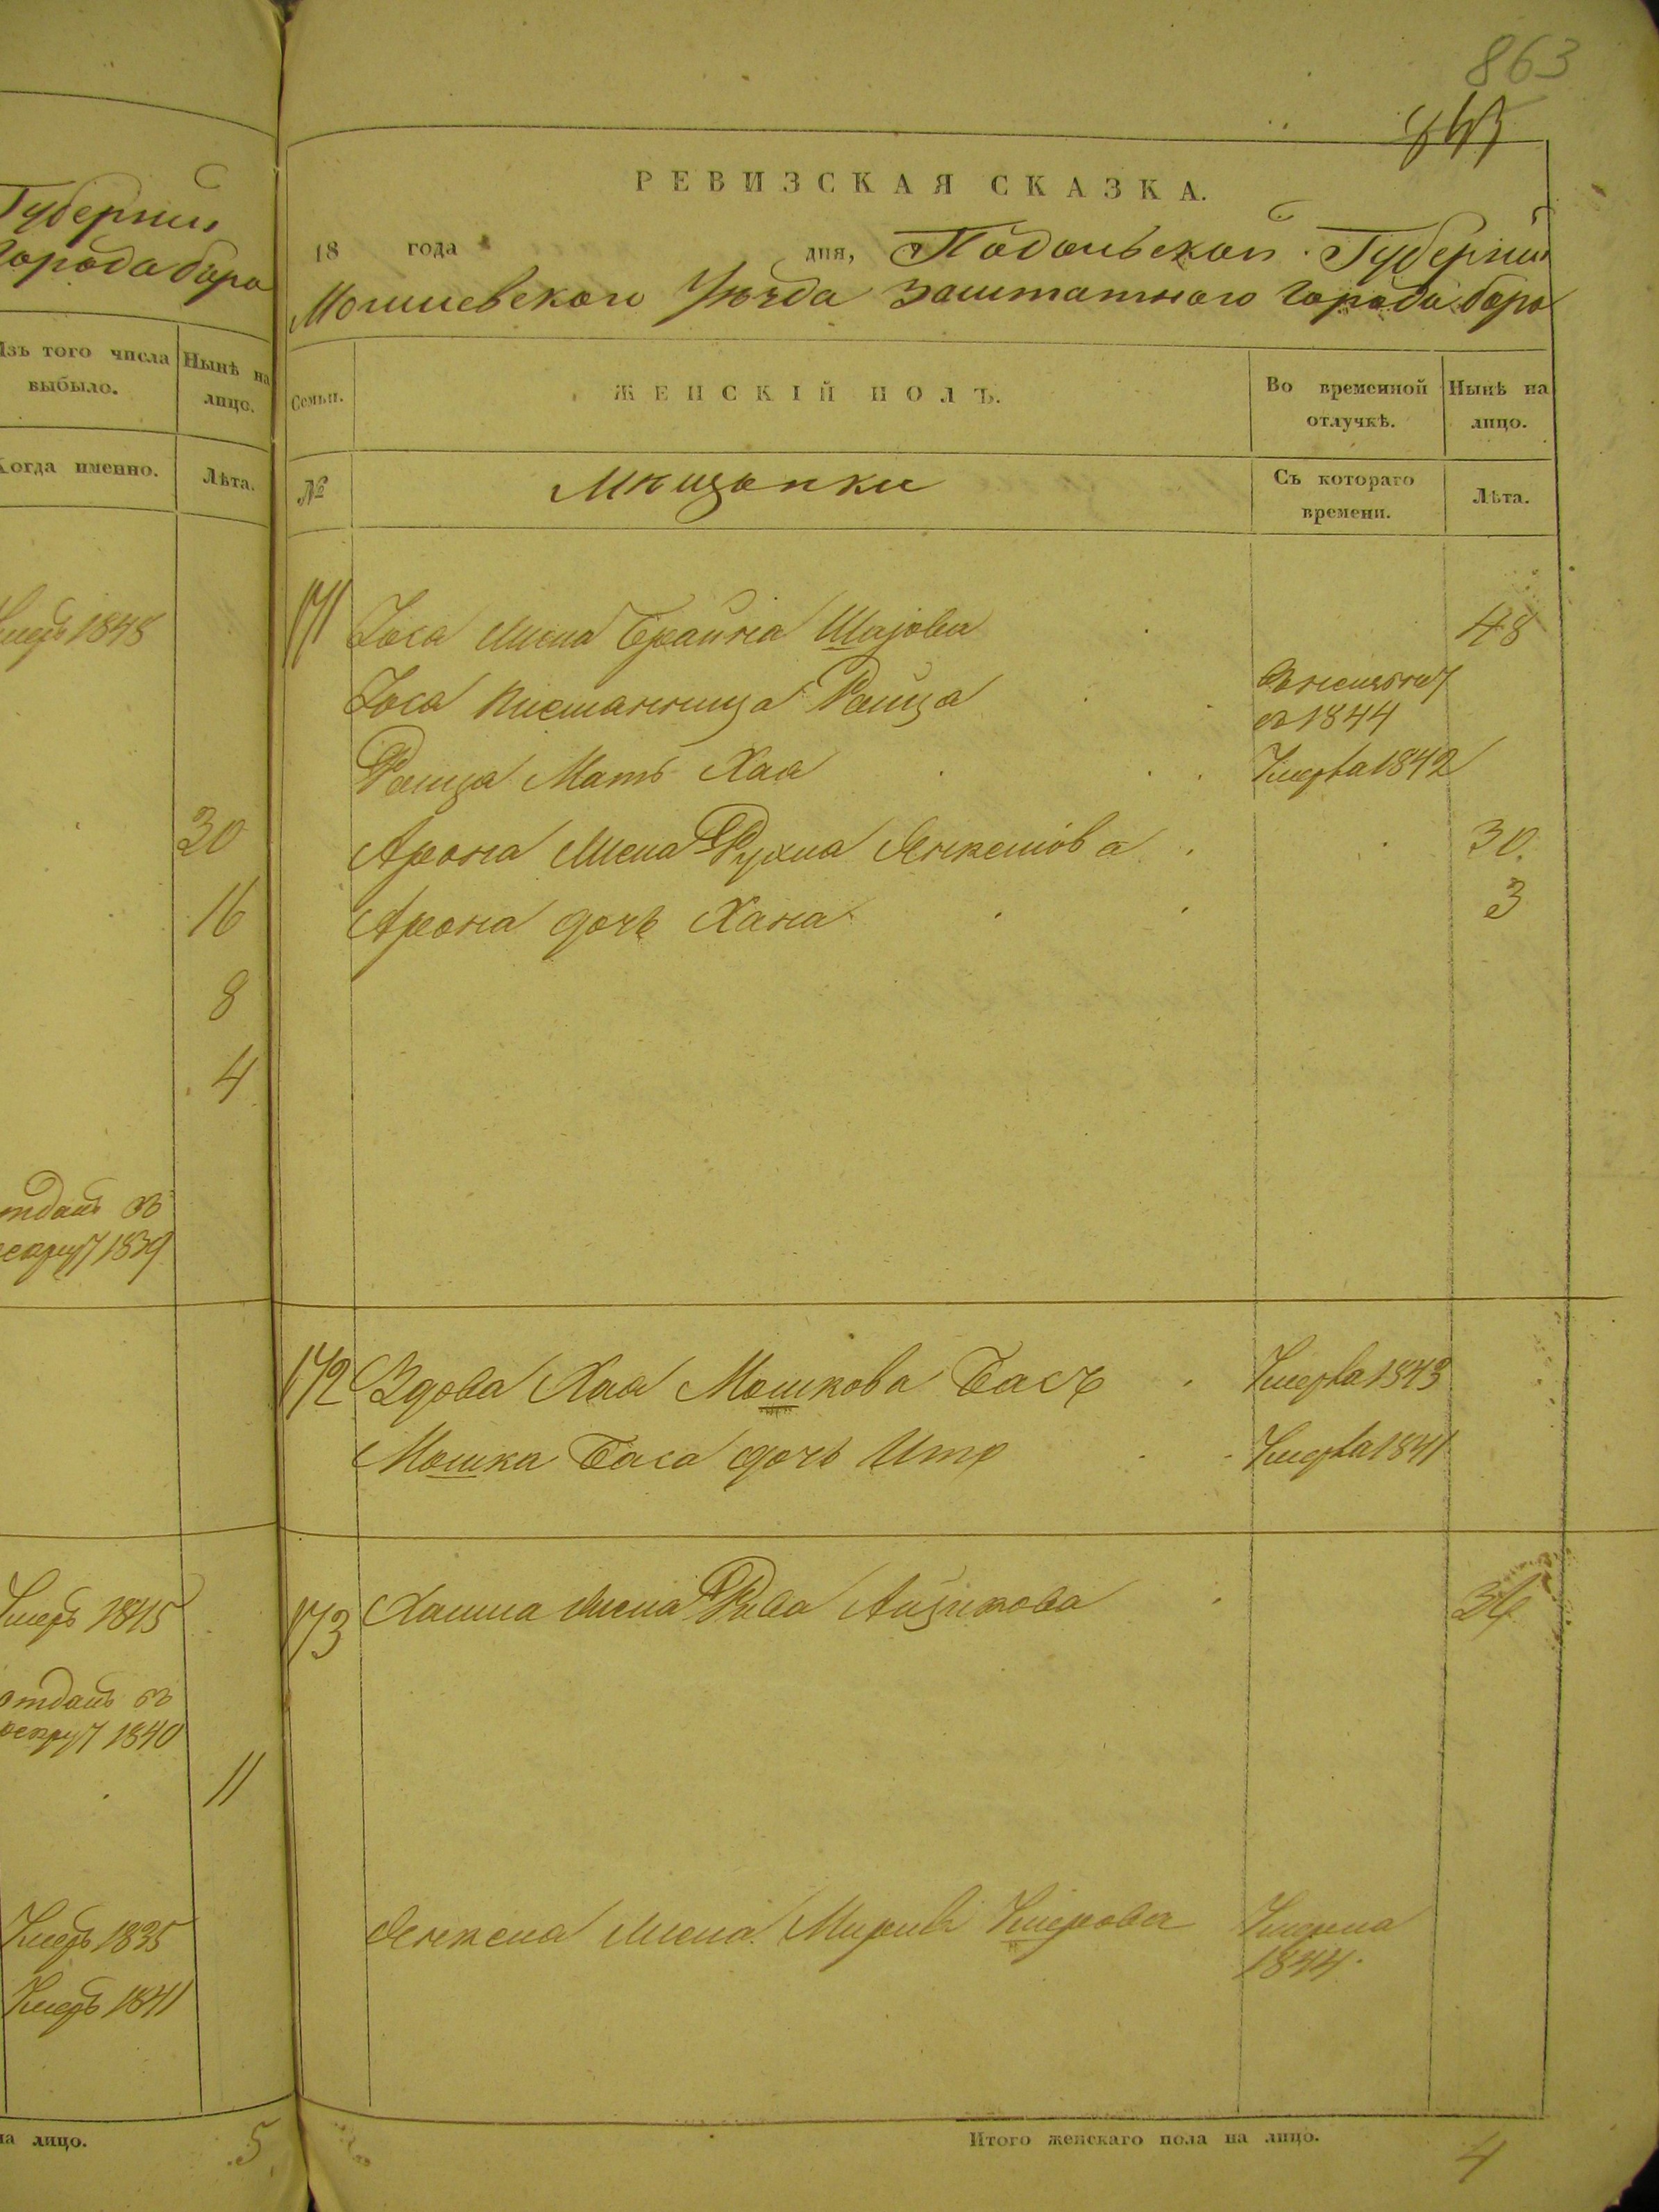 Губерніи
Города Баро
Изъ того числа
выбыло.
Нынѣ на
лицо.
Когда именно.
Лѣта.
30
16
8
4
отданъ въ
рекрут 1839
Умеръ 1845
отданъ въ
рекрут 1840
11
Умеръ 1835
Умеръ 1841
на лицо.
5
863
843
РЕВИЗСКАЯ СКАЗКА.
18 года дня, Подольской Губерніи
Уѣзда Заштатного Города Баро
Семьи.
ЖЕНСКІЙ ПОЛЪ.
Во временной
отлучкѣ.
Нынѣ на
лицо.
№
Мѣщанки
Съ котораго
времени.
Лѣта.
171 Іоса жена Брайна 48
Іоса Раица
въ 1844
Раица Мать Хая Умерла 1842
Арона жена Рухля Янкелiова 30
Арона дочь Хана 3
172 Вдова Хая Мошкова Басъ Умерла 1843
Мошка Баса дочь Итр Умерла 1841
173 жена Рива Айзикова 34
Янкеля жена
1844
Итого женскаго пола на лицо. 4